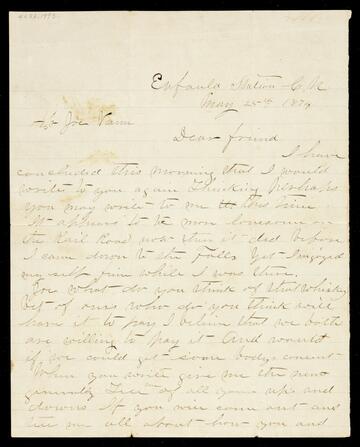 Eufaula Station C. N.
May 25th 1874
Mr Joe Vann
Dear friend
I have
concluded this morning that I would
write to you again thinking perhaps
you may write to me this time
It appears to be more lonesome on
the Rail Road now then it did before
I came down to the Falls yet I injoyed
my self fine while I was there.
Joe what do you think of that whisky
bit of ours who do you think will
have it to pay I believe that we both
are willing to pay it and would
if we could get some bodys consent
When you write give me the new
generally of all your ups and
downs If you ever come out and
tell me all about how you and